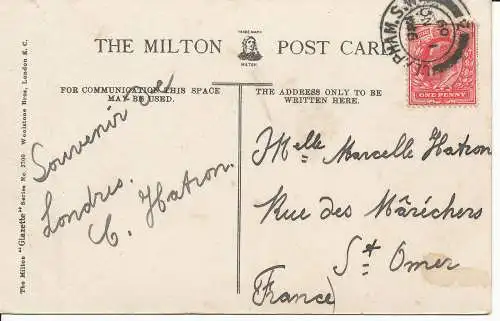 THE MILTON POST CARD
TRADE MARK
MILTON
FOR COMMUNICATION THIS SPACE
MAY BE USED.
THE ADDRESS ONLY TO BE
WRITTEN HERE.
The Milton "Glazette" Series No. Woolstone Bros., London E.C.
Souvenir de
Londres.
C. Hatron.
ONE PENNY
Melle Marcelle Hatron
Rue des Maréchers
St Omer
(France)